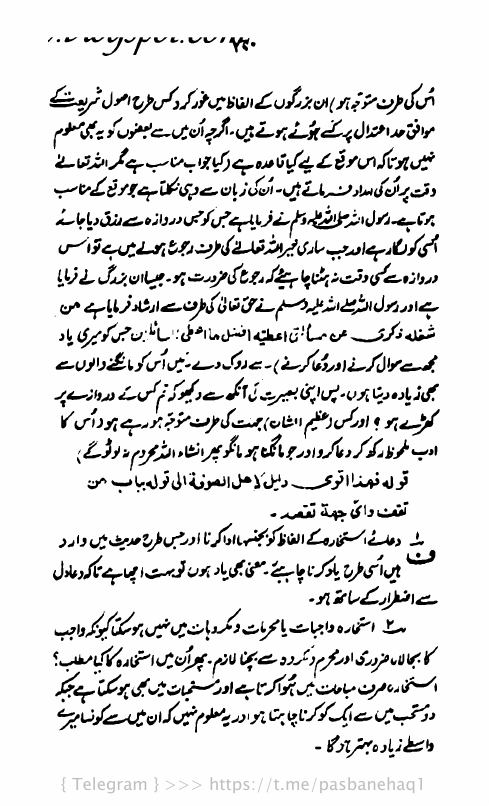 ۷۲۰
اُس کی طرف متوجہ ہو) ان بزرگوں کے الفاظ میں غور کرو کس طرح اصول شریعت کے
موافق حد اعتدال پر کہے ہوئے ہوتے ہیں۔ اگرچہ اُن میں سے بعضوں کو یہ بھی معلوم
نہیں ہوتا کہ اس موقع کے لیے کیا قاعدہ ہے (کیا جواب مناسب ہے مگر اللہ تعالےٰ
وقت پر اُن کی امداد فرماتے ہیں۔ اُن کی زبان سے وہی نکلتا ہے جو موقع کے مناسب
ہوتا ہے۔ رسول اللہ صلی اللہ علیہ وسلم نے فرمایا ہے جس کو جس دروازہ سے رزق دیا جائے
اُسی کو لگا رہے اور جب ساری خیر اللہ تعالےٰ کی طرف رجوع ہونے میں ہے تو اس
دروازہ سے کسی وقت نہ ہٹنا چاہیئے کہ رجوع کی ضرورت ہو۔ جیسا ان بزرگ نے فرمایا
ہے اور رسول اللہ صلے اللہ علیہ وسلم نے حق تعالیٰ کی طرف سے ارشاد فرمایا ہے من
شغلہ ذکری عن مسألتی اعطیتہ افضل ما اعطی السائلین جس کو میری یاد
مجھ سے سوال کرنے (اور دُعا کرنے) سے روک دے۔ میں اُس کو مانگنے والوں سے
بھی زیادہ دیتا ہوں۔ پس اپنی بصیرت کی آنکھ سے دیکھو کہ تم کس کے دروازے پر
کھڑے ہو؟ اور کس (عظیم الشان) جہت کی طرف متوجہ ہو رہے ہو (اُس کا
ادب ملحوظ رکھ کر دعا کرو اور جو مانگنا ہو مانگو پھر انشاء اللہ محروم نہ لوٹو گے)
قولہ فہذا اقوی دلیل لاھل الصوفۃ الی قولہ بباب من
تقف وائ جھۃ تقصد۔
ف ۱ دعائے استخارہ کے الفاظ کو بجنسہا ادا کرنا اور جس طرح حدیث میں وارد
ہیں اُسی طرح یاد کرنا چاہیئے۔ معنی بھی یاد ہوں تو بہت اچھا ہے تاکہ دعا دل
سے اضطرار کے ساتھ ہو۔
۲ استخارہ واجبات یا محرمات و مکروہات میں نہیں ہو سکتا کیونکہ واجب
کا بجا لانا ضروری اور محرم و مکروہ سے بچنا لازم۔ پھر اُن میں استخارہ کا کیا مطلب؟
استخارہ صرف مباحات میں ہُوا کرتا ہے اور مستحبات میں بھی ہو سکتا ہے جبکہ
دو مستحب میں سے ایک کو کرنا چاہتا ہو اور یہ معلوم نہیں کہ ان میں سے کونسا میرے
واسطے زیادہ بہتر ہوگا۔
{ Telegram } >>> https://t.me/pasbanehaq1